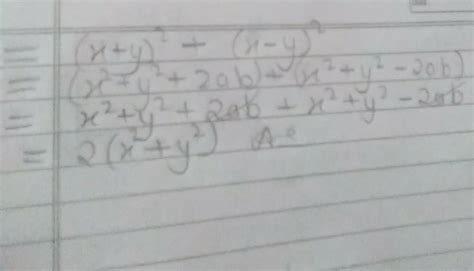 = (x+y)² + (x-y)²
= (x²+y²+2ab)+(x²+y²-2ab)
= x²+y²+2ab + x²+y²-2ab
= 2(x²+y²)